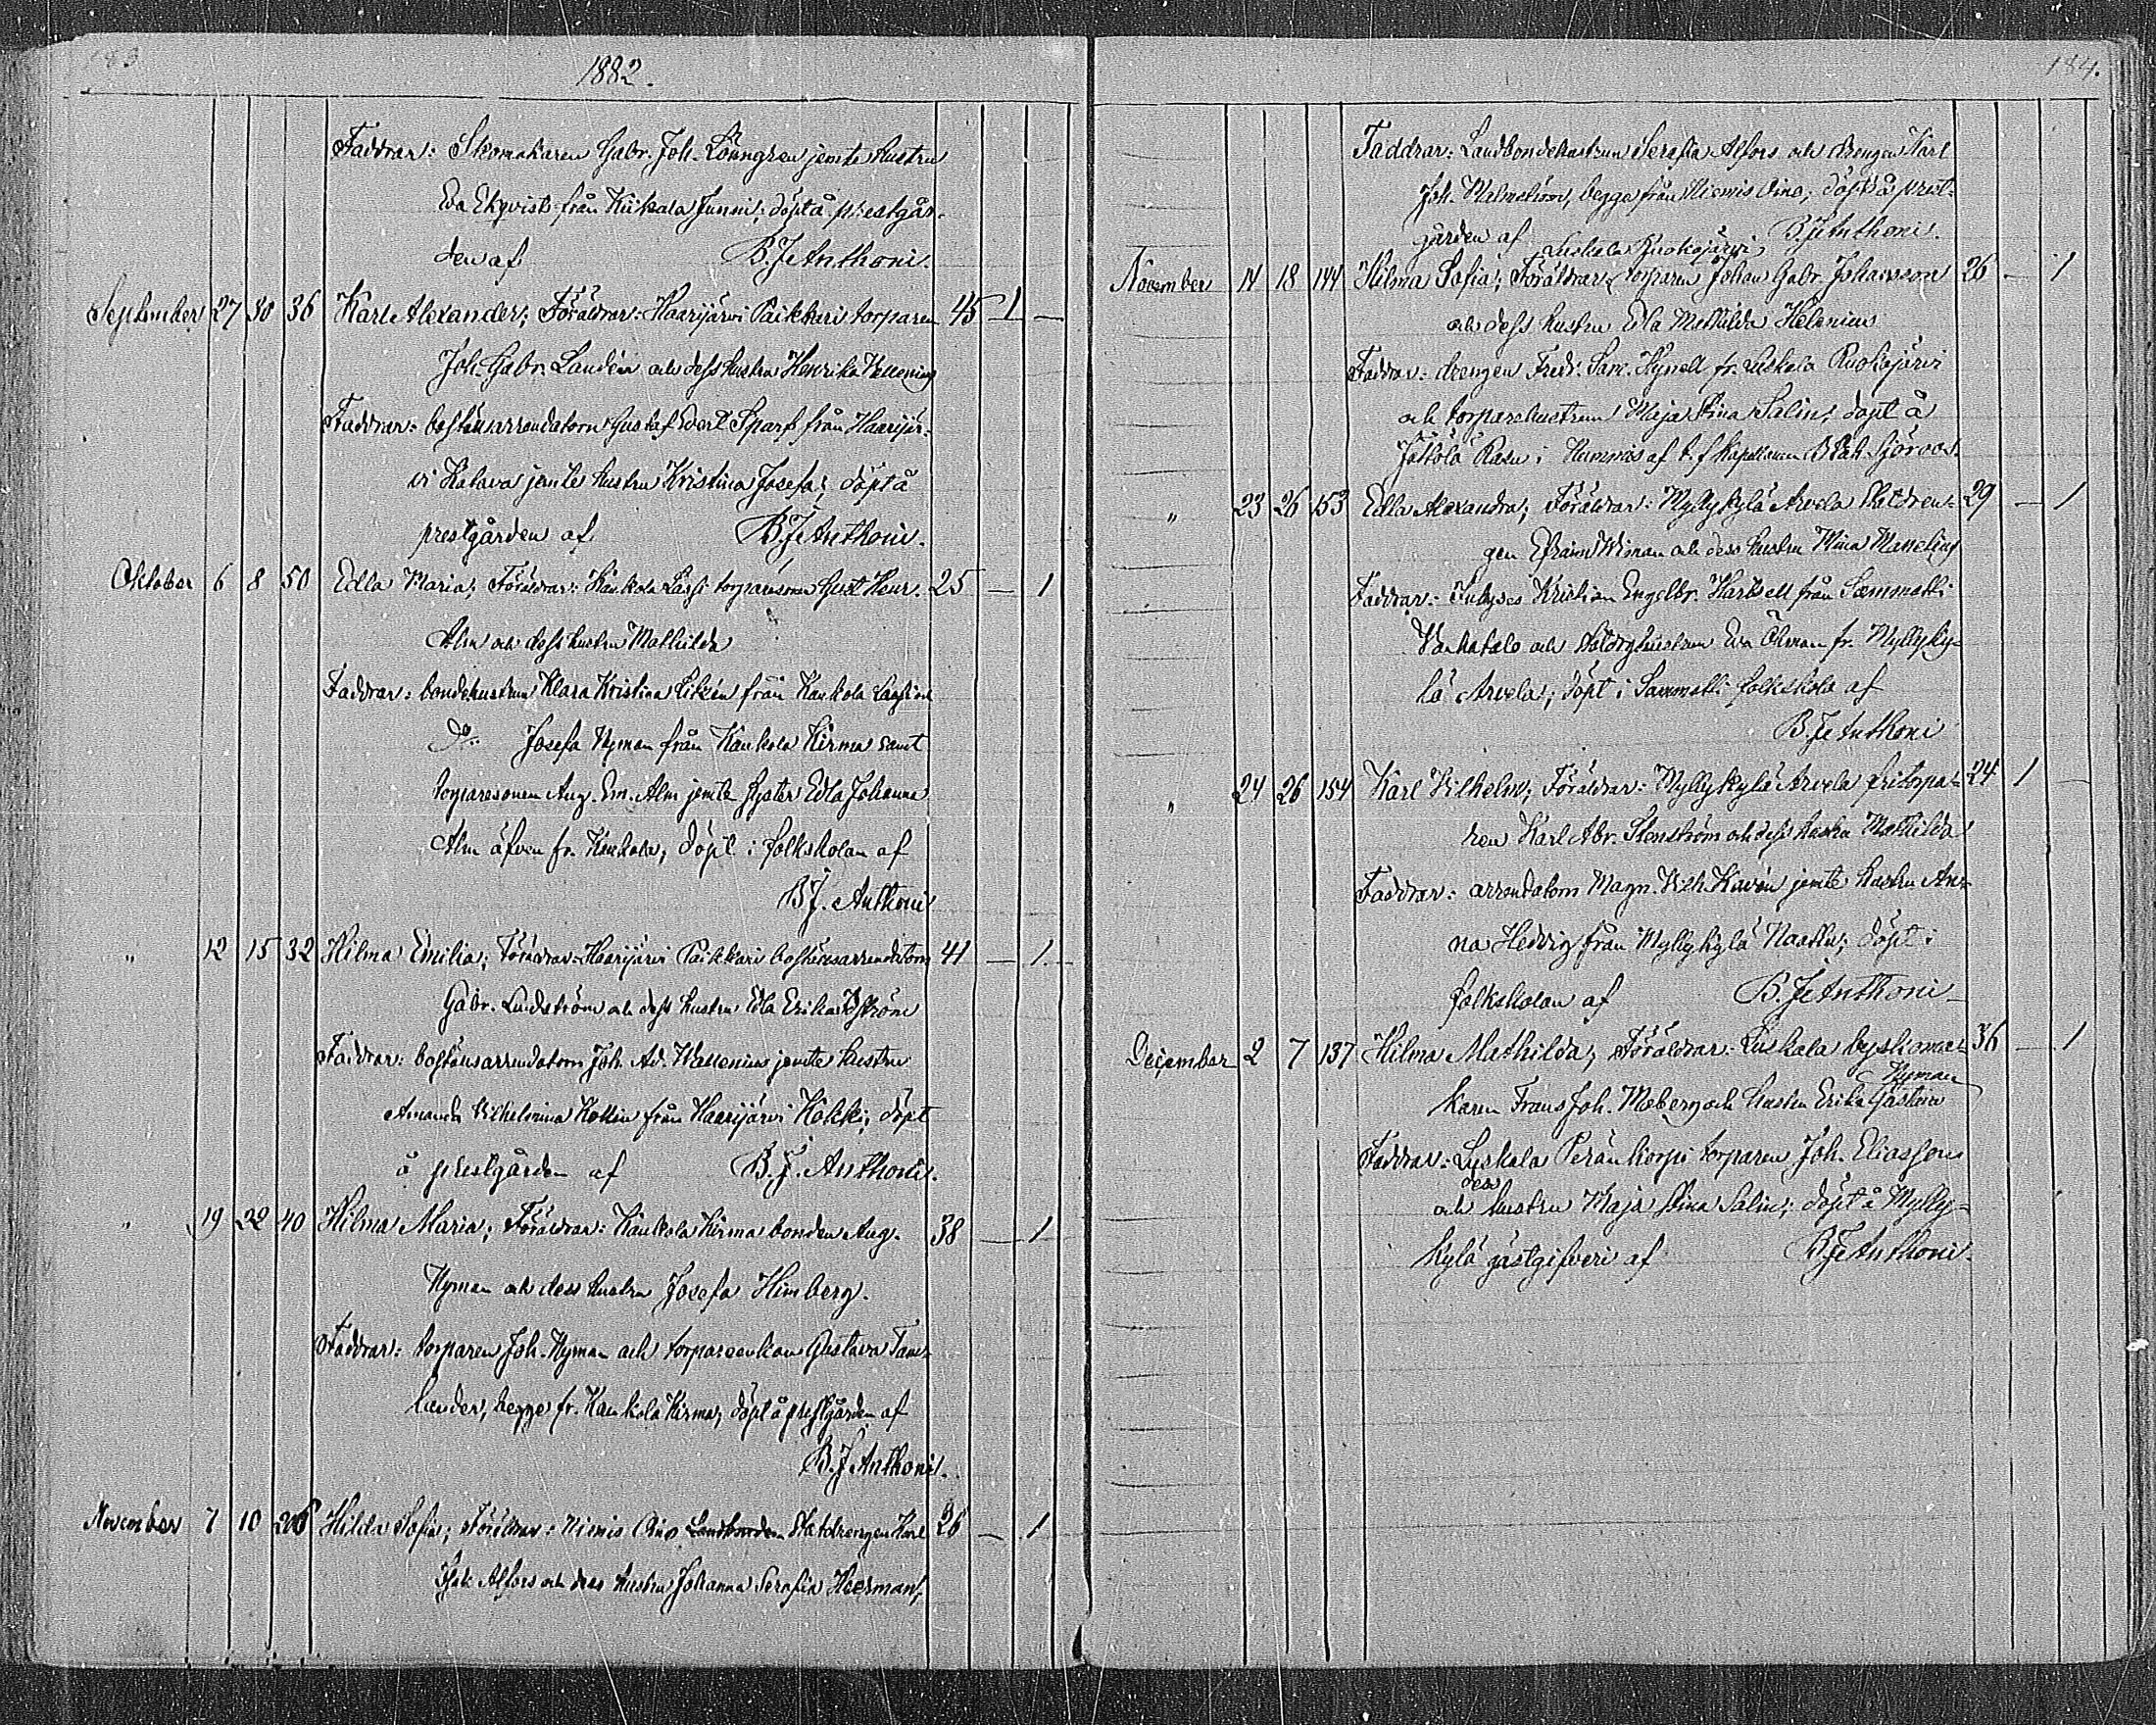 183
1882.
Faddrar: Skomakaren Gabr. Joh. Lönngren jemte hustru
Eva Ekqvist från Kiikala Junni; döpt å prestgår-
den af B. J. Anthoni.
September 27 30 36 Karl Alexander; Föräldrar: Haarijärvi Paikkari torparen 45 1 —
Joh. Gabr. Landén och dess hustru Henrika Wallenius
Faddrar: bostälsarrendatorn Gustaf Edvard Sparf från Haarijär-
vi Kalava jemte hustru Kristina Josefa; döpt å
prestgården af B. J. Anthoni.
Oktober 6 8 50 Edla Maria; Föräldrar: Kaukola Lassi torparesonen Gust. Henr. 25 — 1
Alm och dess hustru Mathilda
Faddrar: bondehustrun Klara Kristina Likén från Kaukola Lassi
Do: Josefa Nyman från Kaukola Kirma samt
torparesonen Aug. Em. Alm jemte syster Edla Johanna
Alm äfven fr. Kaukola; döpt i folkskolan af
B. J. Anthoni
" 12 15 32 Hilma Emilia; Föräldrar: Haarijärvi Paikkari bostälsarrendatorn 41 — 1
Gabr. Lindström och dess hustru Edla Erika
Faddrar: bostälsarrendatorn Joh. Ad. Wallenius jemte hustru
Amanda Vilhelmina från Haarijärvi Kokki; döpt
å prestgården af B. J. Anthoni.
" 19 22 40 Hilma Maria; Föräldrar: Kaukola Kirma bonden Aug. 38 — 1
Nyman och dess hustru Josefa Himberg.
Faddrar: torparen Joh. Nyman och torpareenkan Gustava Tam-
lander, begge fr. Kaukola Kirma; döpt å prestgården af
B. J. Anthoni.
November 7 10 Hilda Sofia; Föräldrar: Niemis Aino Landbonden Statdrengen Karl 26 — 1
Isak Alfors och dess hustru Johanna Serafia Heerman;
184.
Faddrar: Landbondehustrun Serafia Alfors och drengen Karl
Joh. Malmström, begge från Niemis Aino; döpt å prest-
gården af B. J. Anthoni.
Luskala Ruokojärvi
November 14 18 144 Hilma Sofia; Föräldrar: torparen Johan Gabr. Johansson 26 — 1
och dess hustru Edla Mathilda Helenius
Faddrar: drengen Fredr. Sam. Kynell fr. Luskala Ruokojärvi
och torparehustrun Maja Stina Salin; döpt å
Jätkölä Rasu i Nummis af t. f. Kapellanen Sjöroos.
" 23 26 153 Edla Alexandra; Föräldrar: Myllykylä Arvela Statdren- 29 — 1
gen Efraim Wiman och dess hustru Mina Manelius
Faddrar: Inhyses Kristian Engelbr. Hartzell från Sammatti
Vanhatalo och Statdrghustrun Eva Öhman fr. Myllyky-
lä Arvela; döpt i Sammatti folkskola af
B. J. Anthoni
" 24 26 154 Karl Vilhelm; Föräldrar: Myllykylä Arvela fritorpa- 24 1 —
ren Karl Abr. Stenström och dess hustru Mathilda
Faddrar: arrendatorn Magn. Vilh. Kavén jemte hustru An-
na Hedvig från Myllykylä Naattu; döpt i
folkskolan af B. J. Anthoni
December 2 7 137 Hilma Mathilda; Föräldrar: Luskala byskoma- 36 — 1
Nyman
karen Frans Joh. Moberg och hustru Erika Gustava
Faddrar: Luskala Peränkorpi torparen Joh. Eliasson
dess
och hustru Maja Stina Salin; döpt å Mylly-
kylä gästgifveri af B. J. Anthoni.